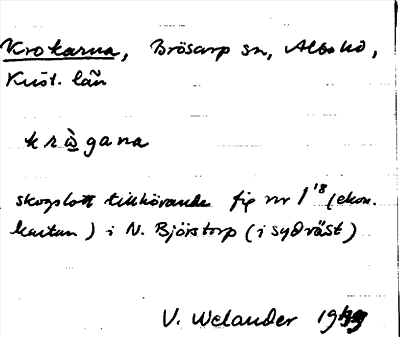 Krokarna, Brösarp sn, Albo hd,
Krist. län
kràgana
skogslott tillhörande fig nr 1¹⁸ (ekon.
kartan) i N. Björstorp (i sydväst)
V. Welander